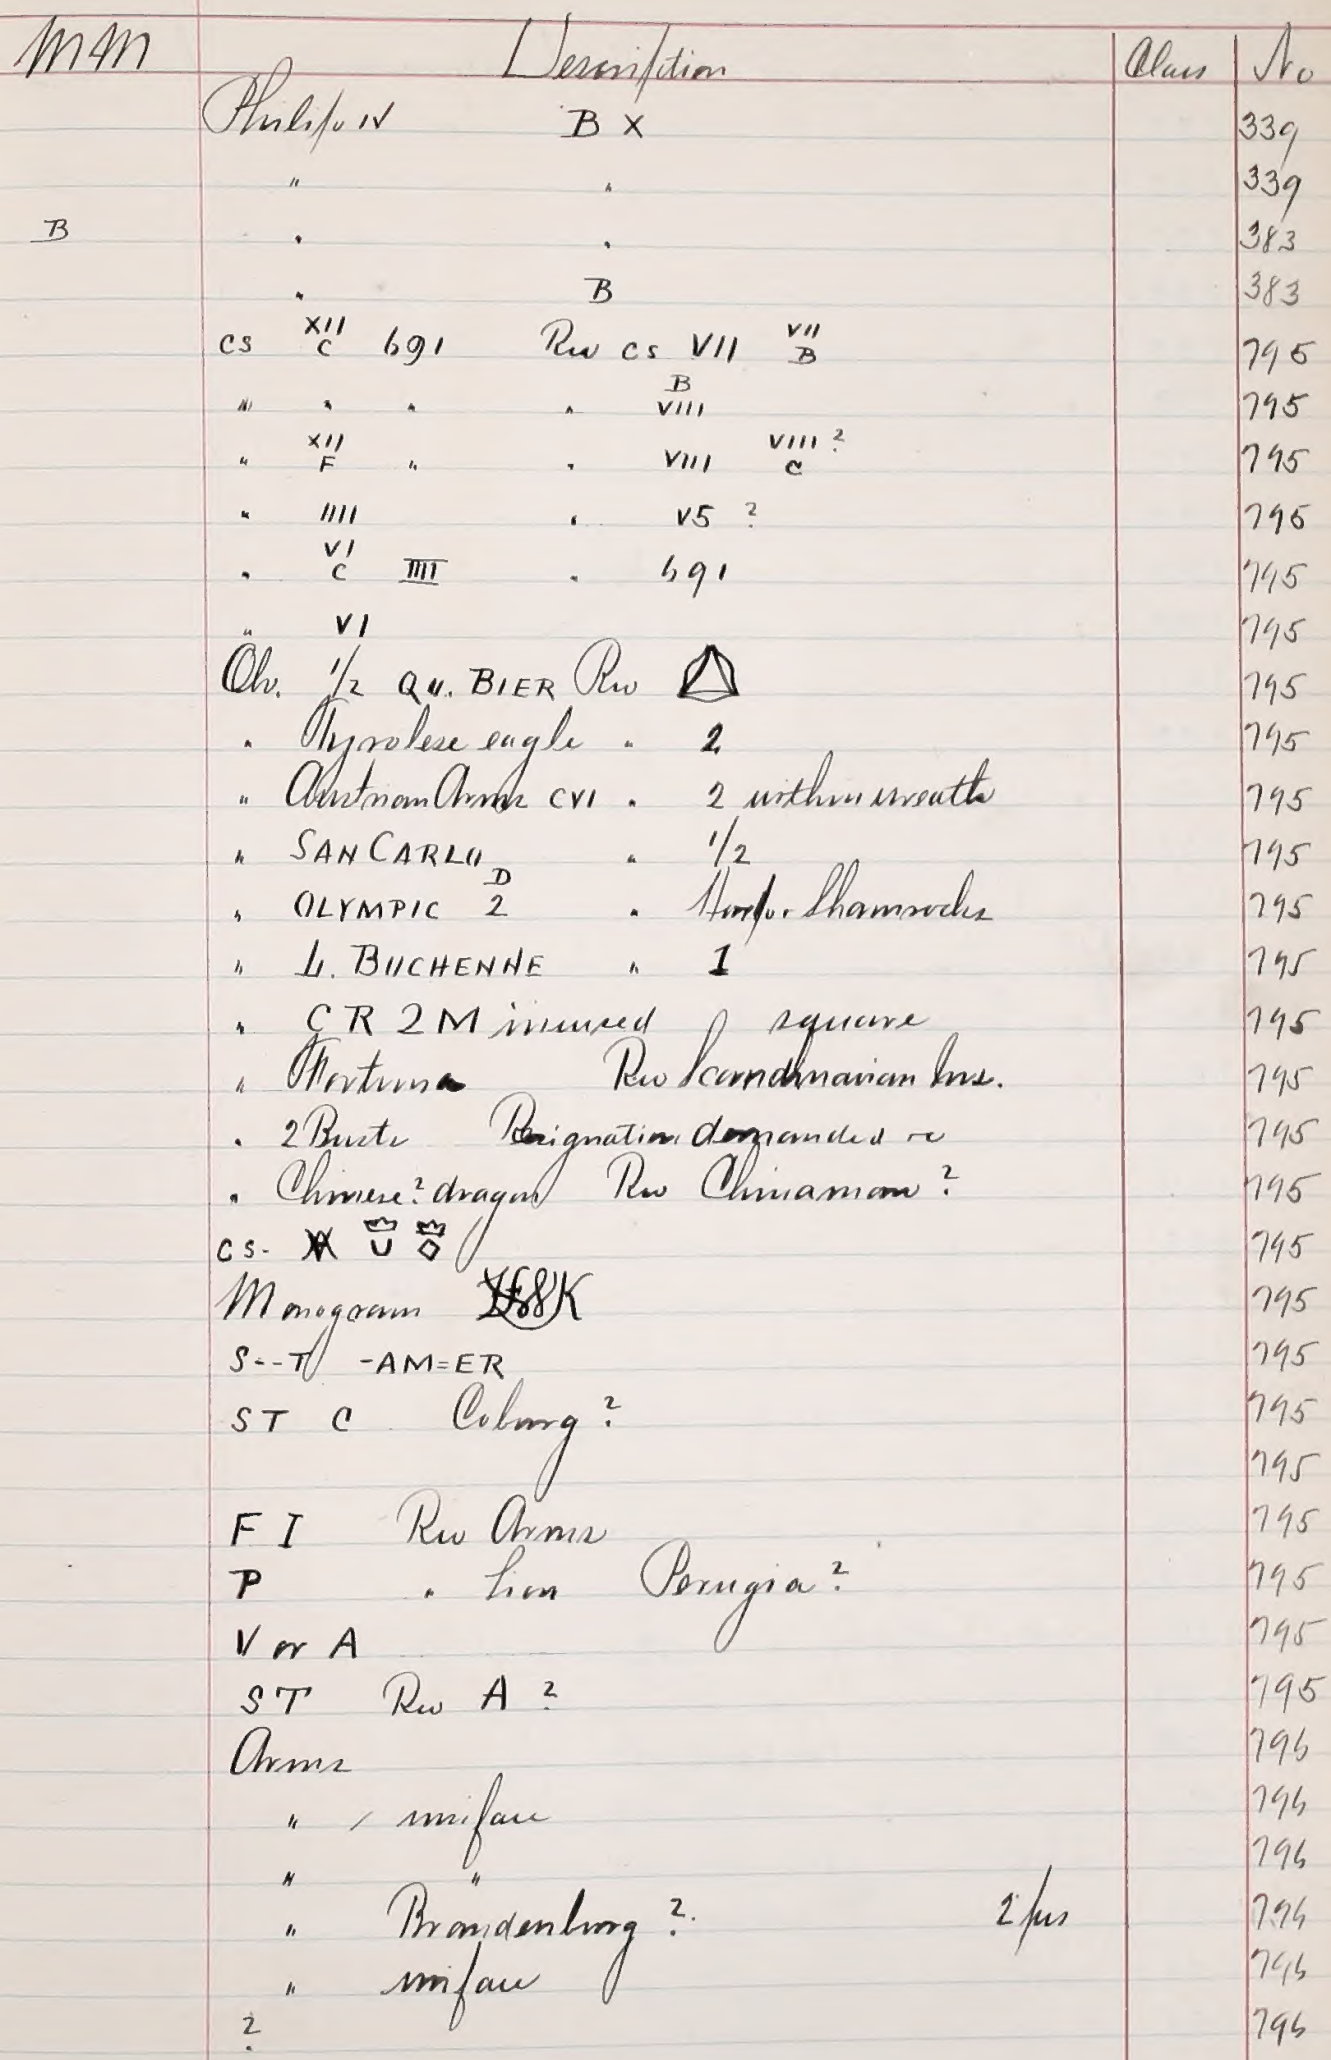 MM Description Class No
Philip IV B X 339
" " 339
B " " 383
" B 383
cs XII C 691 Rev cs VII VII B 795
" " " " B VIII 795
" XII F " " VIII VIII ? C 795
" IIII " V5 ? 795
" VI C IIII " 691 795
" VI 795
Obv. 1/2 QU. BIER Rev 795
" Tyrolese eagle " 2 795
" Austrian Arms CVI " 2 within wreath 795
" SAN CARLO " 1/2 795
" OLYMPIC 2 D " Harp. Shamrocks 795
" L. BUCHENNE " 1 795
" CR 2 M incused square 795
" Fortuna Rev Scandinavian Ins. 795
" 2 Busts Resignation demanded 795
" Chinese? dragon Rev Chinaman? 795
cs- U 795
Monogram 795
S--T -AM=ER 795
ST C Coburg? 795
795
F I Rev Arms 795
P " Lion Perugia? 795
V or A 795
ST Rev A ? 795
Arms 796
" uniface 796
" " 796
" Brandenburg ? 2 pcs 796
" uniface 796
? 796